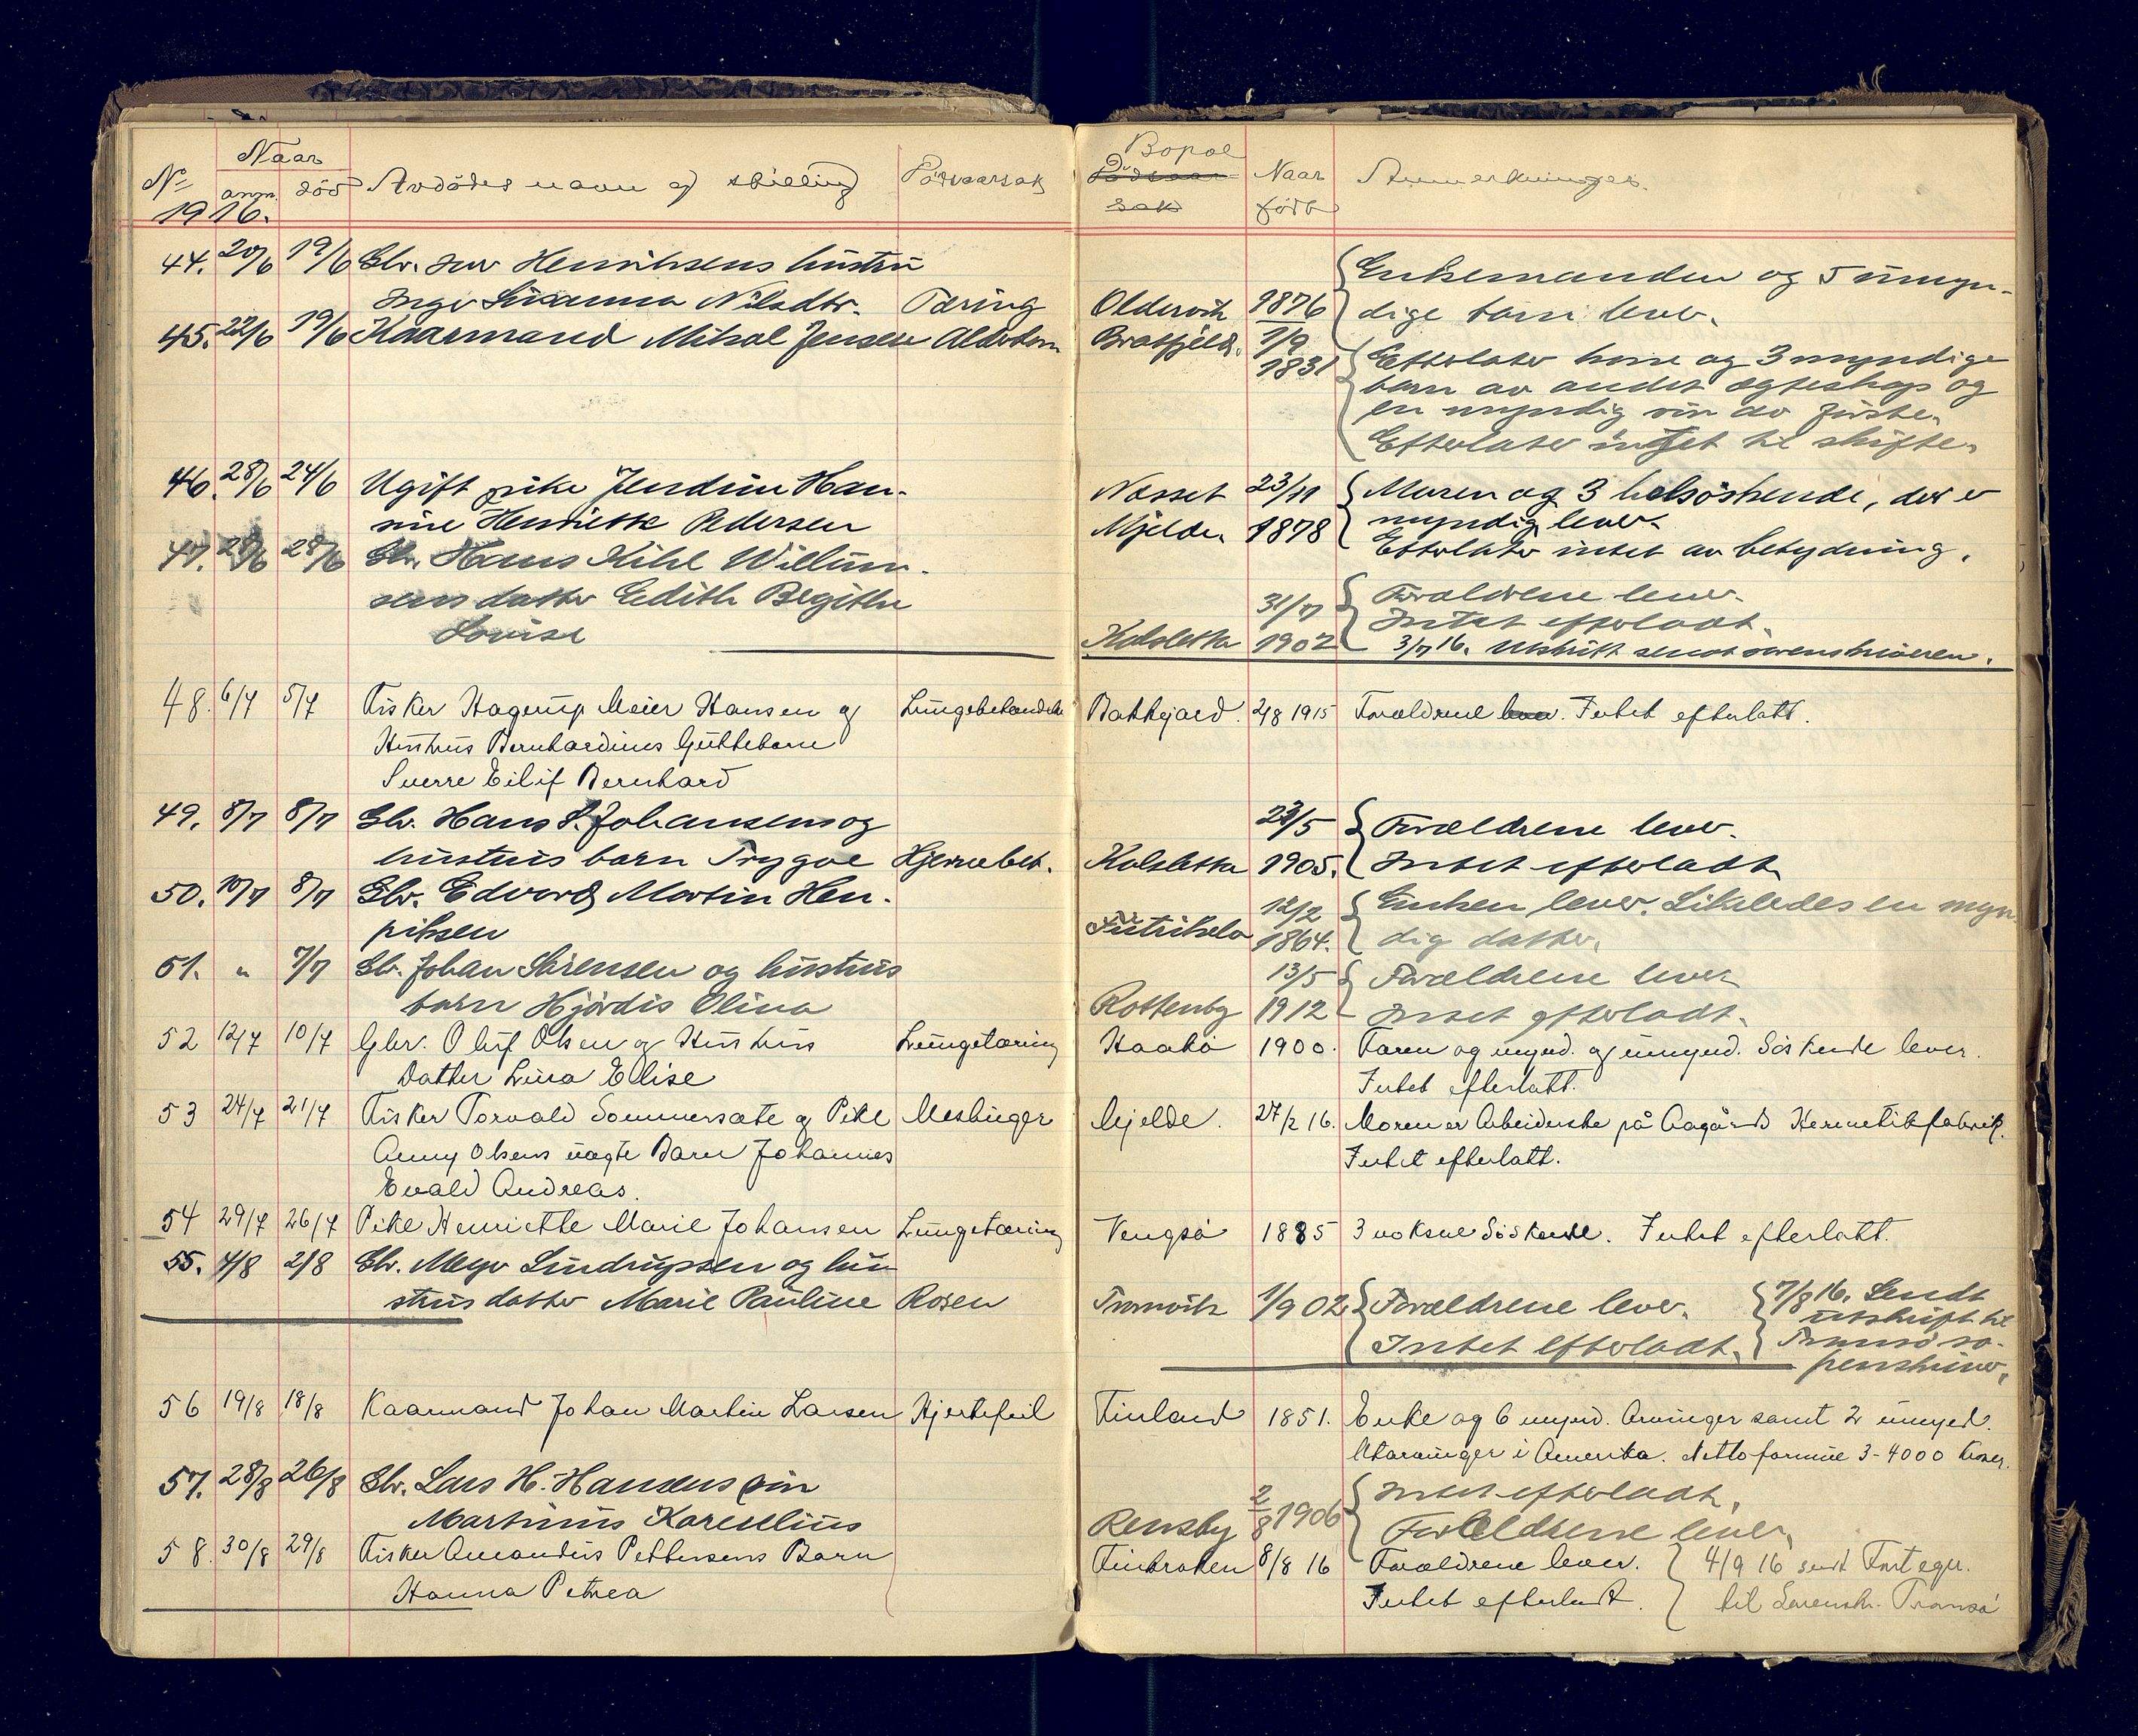 Naar
No anm. död Avdödes navn og stilling Dödsaarsak
1916.
44. 20/6 19/6 Gbr. Henriksens hustru
Inga Susanna Nilsdtr. Tæring
45. 22/6 19/6 Kaarmand Mikal Jensen Alderdom
46. 28/6 24/6 Ugift pike Jendine Han-
sine Henriette Pedersen
47. 28/6 28/6 Gbr. Hans Kihl Willum-
sens datter Edith Birgithe
Lovise
48. 6/7 5/7 Fisker Hagerup Meier Hansen og
Hustrus Bernhardines Guttebarn Lungebetændelse
Sverre Eilif Bernhard
49. 8/7 8/7 Gbr. Hans P. Johansens og
hustrus barn Trygve Hjernebet.
50. 10/7 8/7 Gbr. Edvard Martin Hen-
riksen
51. " 7/7 Gbr. Johan Sörensen og hustrus
barn Hjördis Olina
52 12/7 10/7 Gbr. Oluf Olsen og Hustrus Lungetæring
Datter Lina Elise
53 24/7 21/7 Fisker Torvald Sommersæte og Pike
Anny Olsens uægte Barn Johannes
Evald Andreas.
54 29/7 26/7 Pike Henriette Marie Johansen Lungetæring
55. 4/8 2/8 Gbr. Meyer Lindrupsen og hu-
strus datter Marie Pauline Rosen
56 19/8 18/8 Kaarmand Johan Martin Larsen Hjertefeil
57. 28/8 26/8 Gbr. Lars H. Hansens sön
Martinius Kornelius
58. 30/8 29/8 Fisker Amandus Pettersens Barn
Hanna Petrea
Bopæl
Dödsaar Naar Anmerkninger.
sak født
Enkemanden og 5 umyn-
Oldervik 1876 dige barn lever.
Bratfjeld. 1/9
1831 Efterlater kone og 3 myndige
barn av andet ægteskap og
en myndig sön av förste.
Efterlater intet til skifte.
Nasset 23/11 Moren og 3 helsöskende, der er
Mjelde. 1878 myndig, lever.
Efterlater intet av betydning.
31/7 Forældrene lever.
Intet efterladt.
Kalsletta 1902 3/7 16. Utskrift sendt sorenskriveren.
Bakkejord. 2/8 1915 Forældrene lever. Intet efterlatt.
23/5 Forældrene lever.
Kalsletta 1905. Intet efterladt.
12/2 Enken lever. Likeledes en myn-
Futrikelv 1864. dig datter.
13/5 Forældrene lever
Rottenby 1912 Intet efterladt.
Haakö 1900. Faren og mynd. og umynd. Söskende lever.
Intet efterlatt.
Mjelde. 27/2 16. Moren er Arbeiderske på Aagårds Hermetikfabrik.
Intet efterlatt.
Vengsö 1885 3 voksne Söskende. Intet efterlatt.
Tromvik 1/9 02 Forældrene lever. 7/8 16. Sendt
utskrift til
Intet efterladt. Tromsö so-
renskriver.
Finland 1851. Enke og 6 mynd. Arvinger samt 2 umynd.
Utarvinger i Amerika. Nettoformue 3-4000 kroner.
2/8 1906 Intet efterladt.
Rensby Forældrene lever.
Finkroken 8/8 16 Forældrene lever. 4/9 16 sendt Fortegn.
Intet efterladt. til Sorenskr. Tromsö